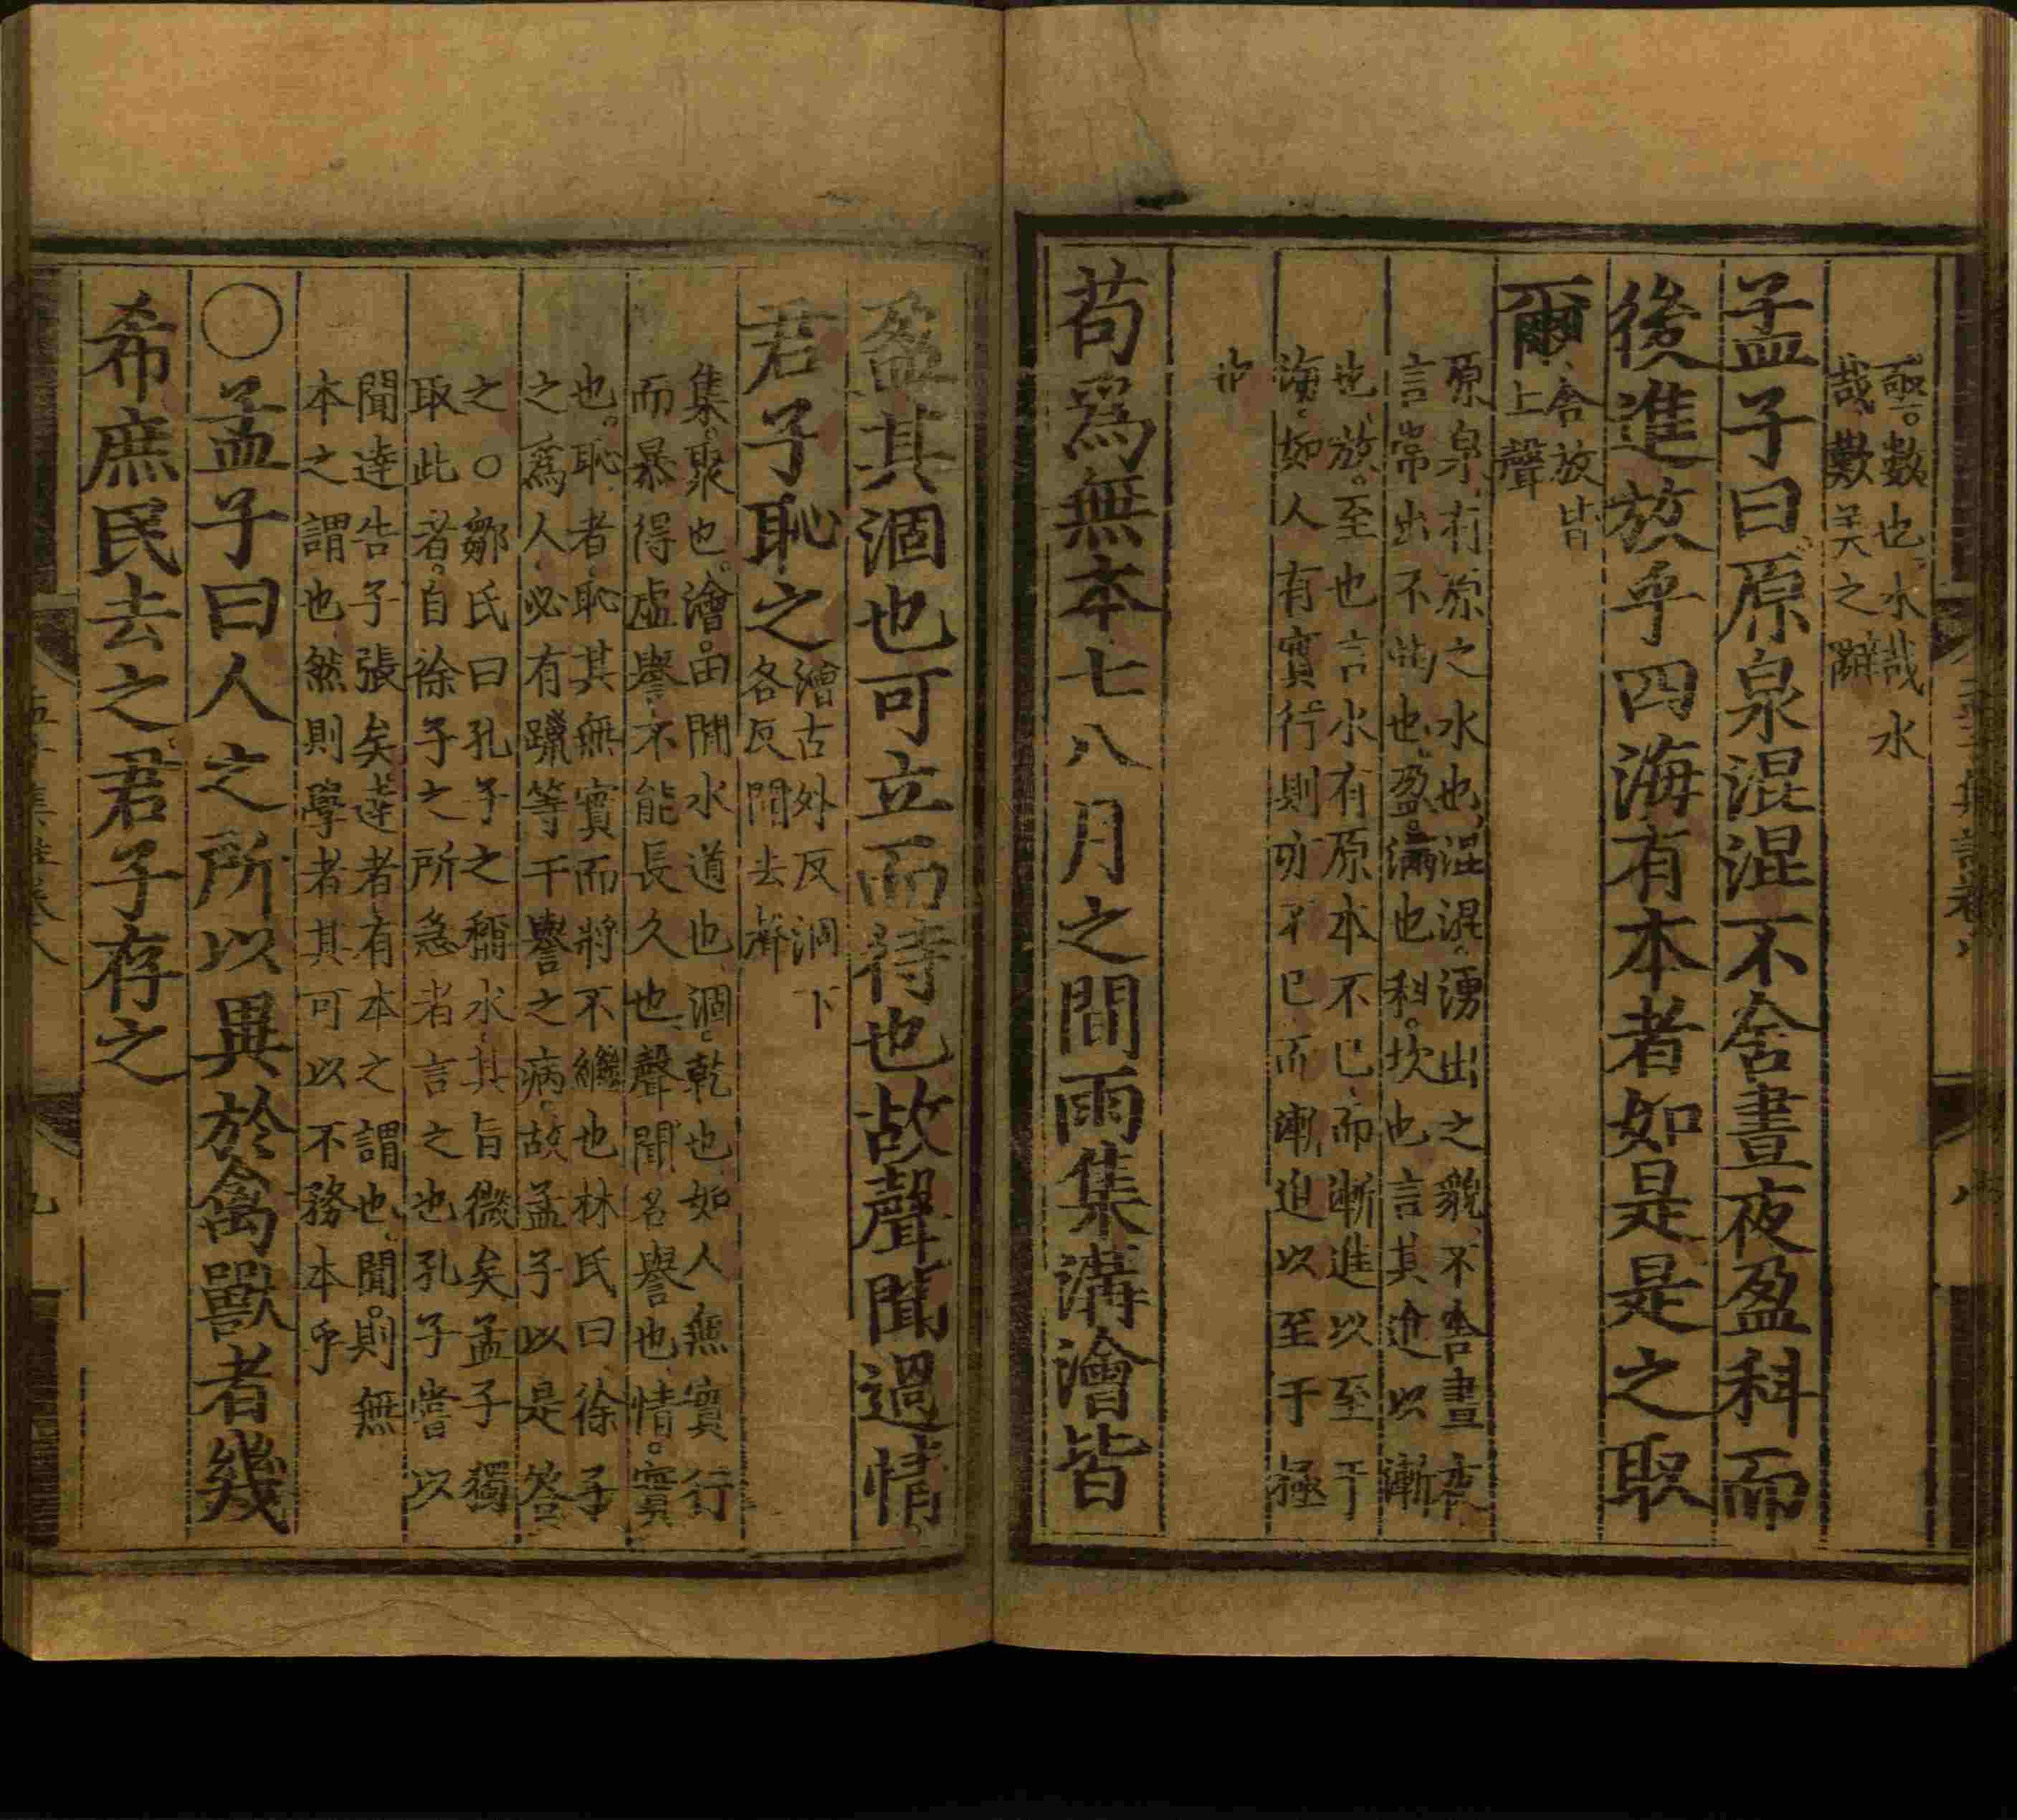 亟。數也、水哉水
哉、歎美之辭
孟子曰原泉混混不舍晝夜盈科而
後進放乎四海有本者如是是之取
爾
舍放皆
上聲
原泉、有原之水也、混混、湧出之貌、不舍晝夜
言常出不竭也、盈。滿也科。坎也言其進以漸
也、放。至也言水有原本不已、而漸進以至于
海、如人有實行則亦不已而漸進以至于極
也
苟爲無本七八月之間雨集溝澮皆
盈其涸也可立而待也故聲聞過情
君子恥之
澮古外反涸下
各反聞去聲
集。聚也。澮。田間水道也、涸、乾也、如人無實行
而暴得虛譽、不能長久也、聲聞、名譽也、情。實
也。恥、者、恥其無實而將不繼也林氏曰、徐子
之爲人、必有躐等干譽之病、故孟子以是答
之○鄒氏曰孔子之稱水、其旨微矣孟子獨
取此者。自徐子之所急者言之也孔子嘗以
聞達告子張矣達者有本之謂也、聞。則無
本之謂也、然則學者其可以不務本乎
○孟子曰人之所以異於禽獸者幾
希庶民去之君子存之